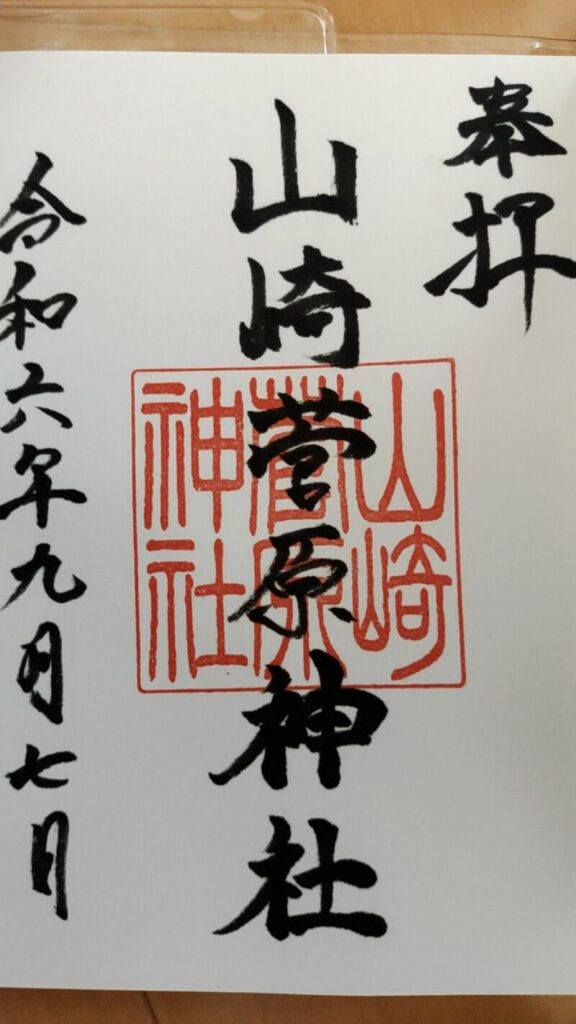 奉拝
山崎菅原神社
山崎
菅原
神社
令和六年九月七日